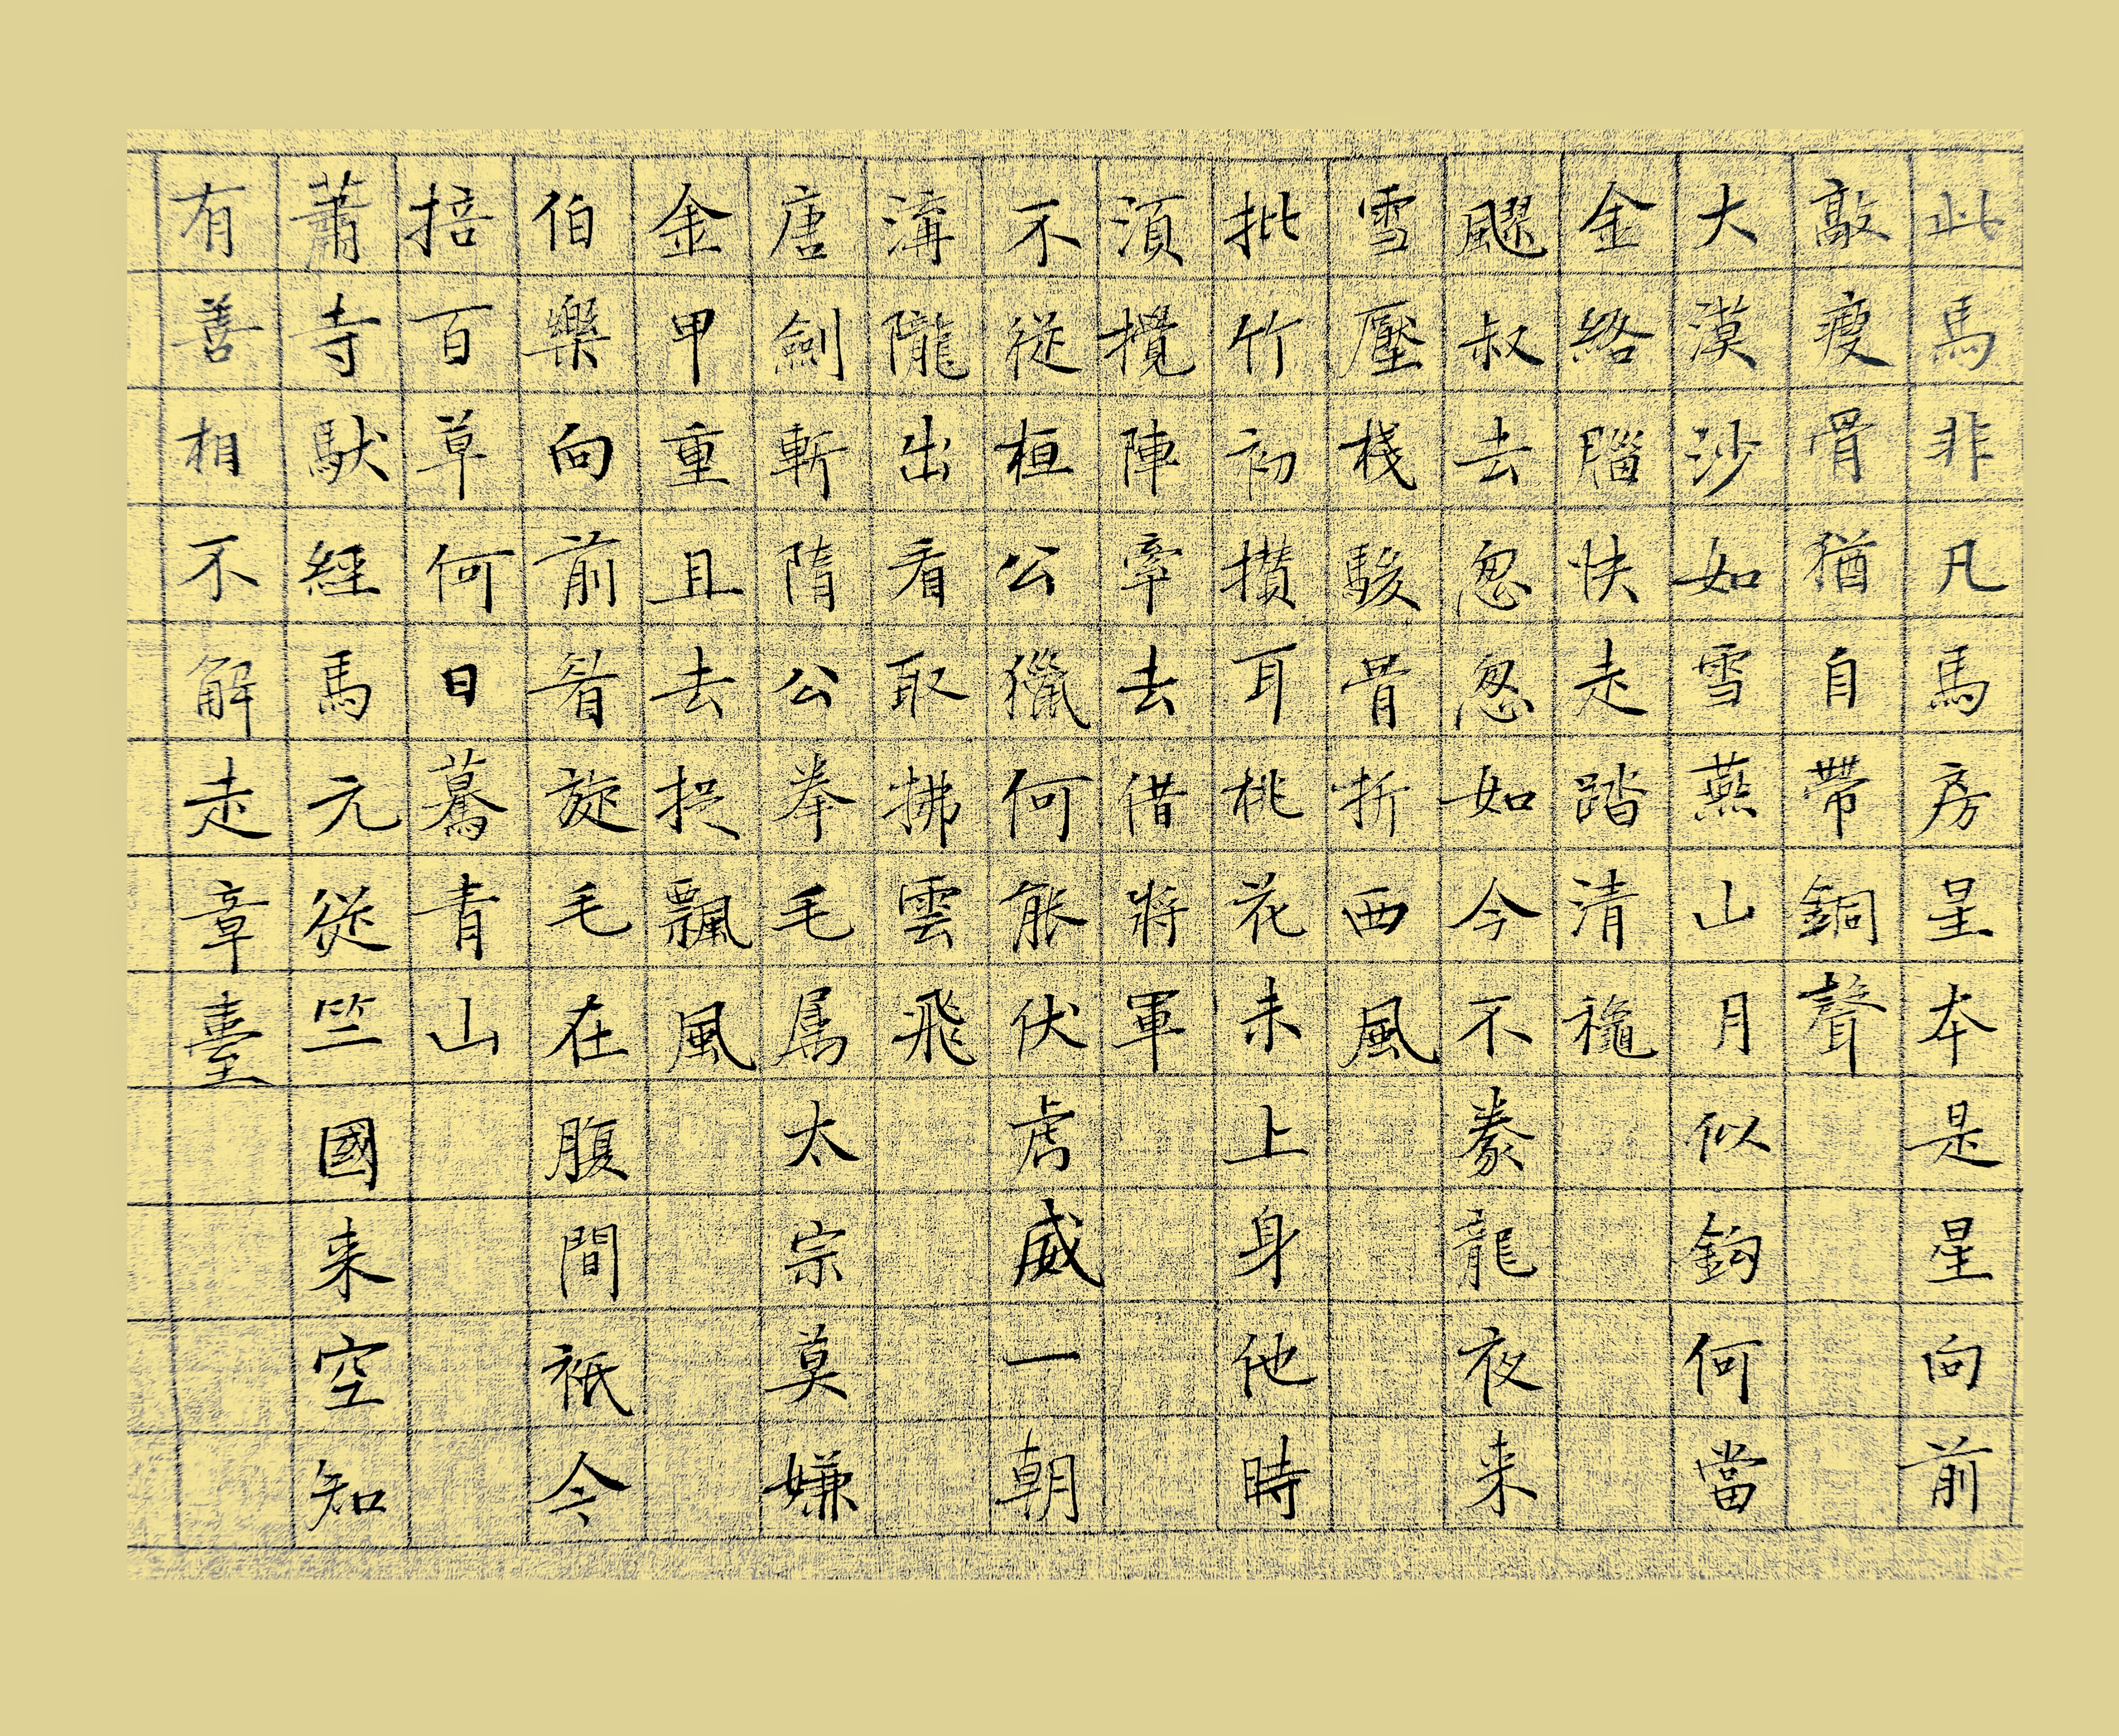 此馬非凡馬房星本是星向前
敲瘦骨猶自帶銅聲
大漠沙如雪燕山月似鈎何當
金絡腦快走踏清龝
飂叔去怱怱如今不豢龍夜来
雪壓棧駿骨折西風
批竹初攢耳桃花未上身他時
須攪陣牽去借將軍
不從桓公獵何能伏虎威一朝
溝隴出看取拂雲飛
唐劍斬隋公拳毛属太宗莫嫌
金甲重且去捉飄風
伯樂向前看旋毛在腹間祇今
掊百草何日驀青山
蕭寺馱經馬元從竺國来空知
有善相不解走章臺